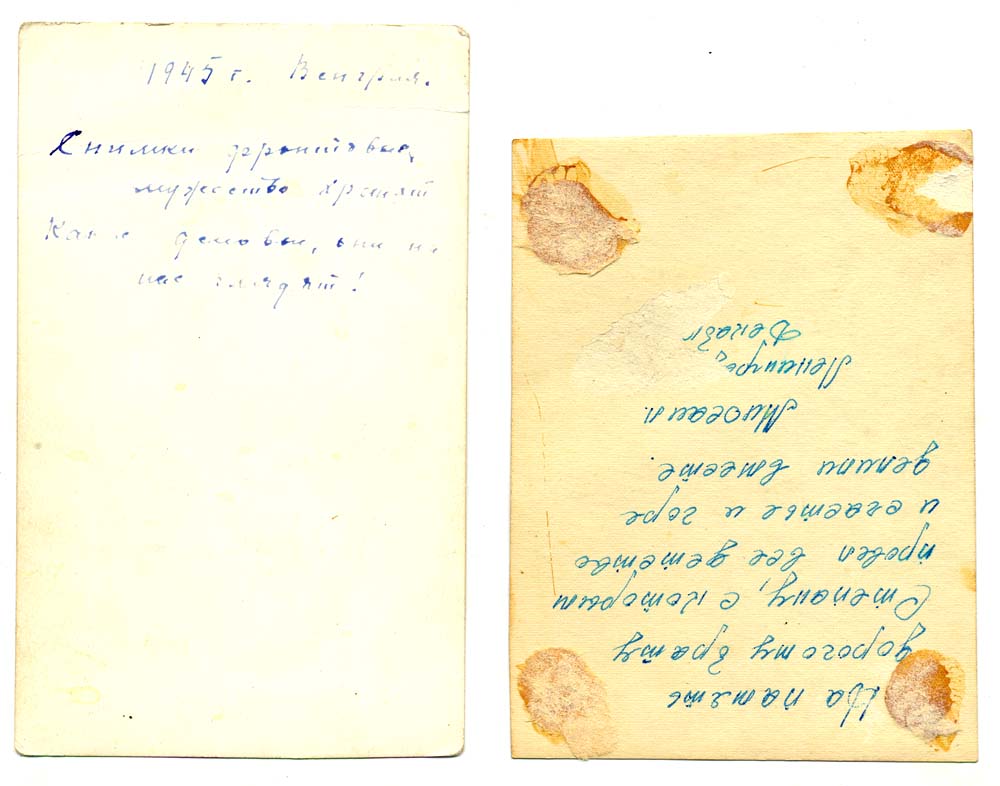 1945 г. Венгрия.
Снимки фронтовые,
мужество хранят
Как деловые, они на
нас глядят!
На память
дорогому брату
Степану, с которым
провел все детство
и счастье и горе
делили вместе.
Михаил.
Ленингр.